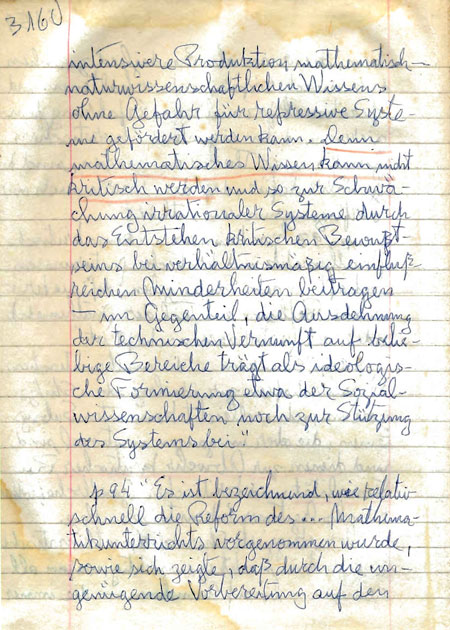 3160
intensivere Produktion mathematisch-
naturwissenschaftlichen Wissens
ohne Gefahr für repressive Syste-
me gefördert werden kann. Denn
mathematisches Wissen kann nicht
kritisch werden und so zur Schwä-
chung irrationaler Systeme durch
das Entstehen kritischen Bewußt-
seins bei verhältnismäßig einfluß-
reichen Minderheiten beitragen
– im Gegenteil, die Ausdehnung
der technischen Vernunft auf belie-
bige Bereiche trägt als ideologis-
che Formierung etwa der Sozial-
wissenschaften noch zur Stützung
des Systems bei."
p 94 "Es ist bezeichnend, wie relativ
schnell die Reform des ... Mathema-
tikunterrichts vorgenommen wurde,
sowie sich zeigte, daß durch die un-
genügende Vorbereitung auf den